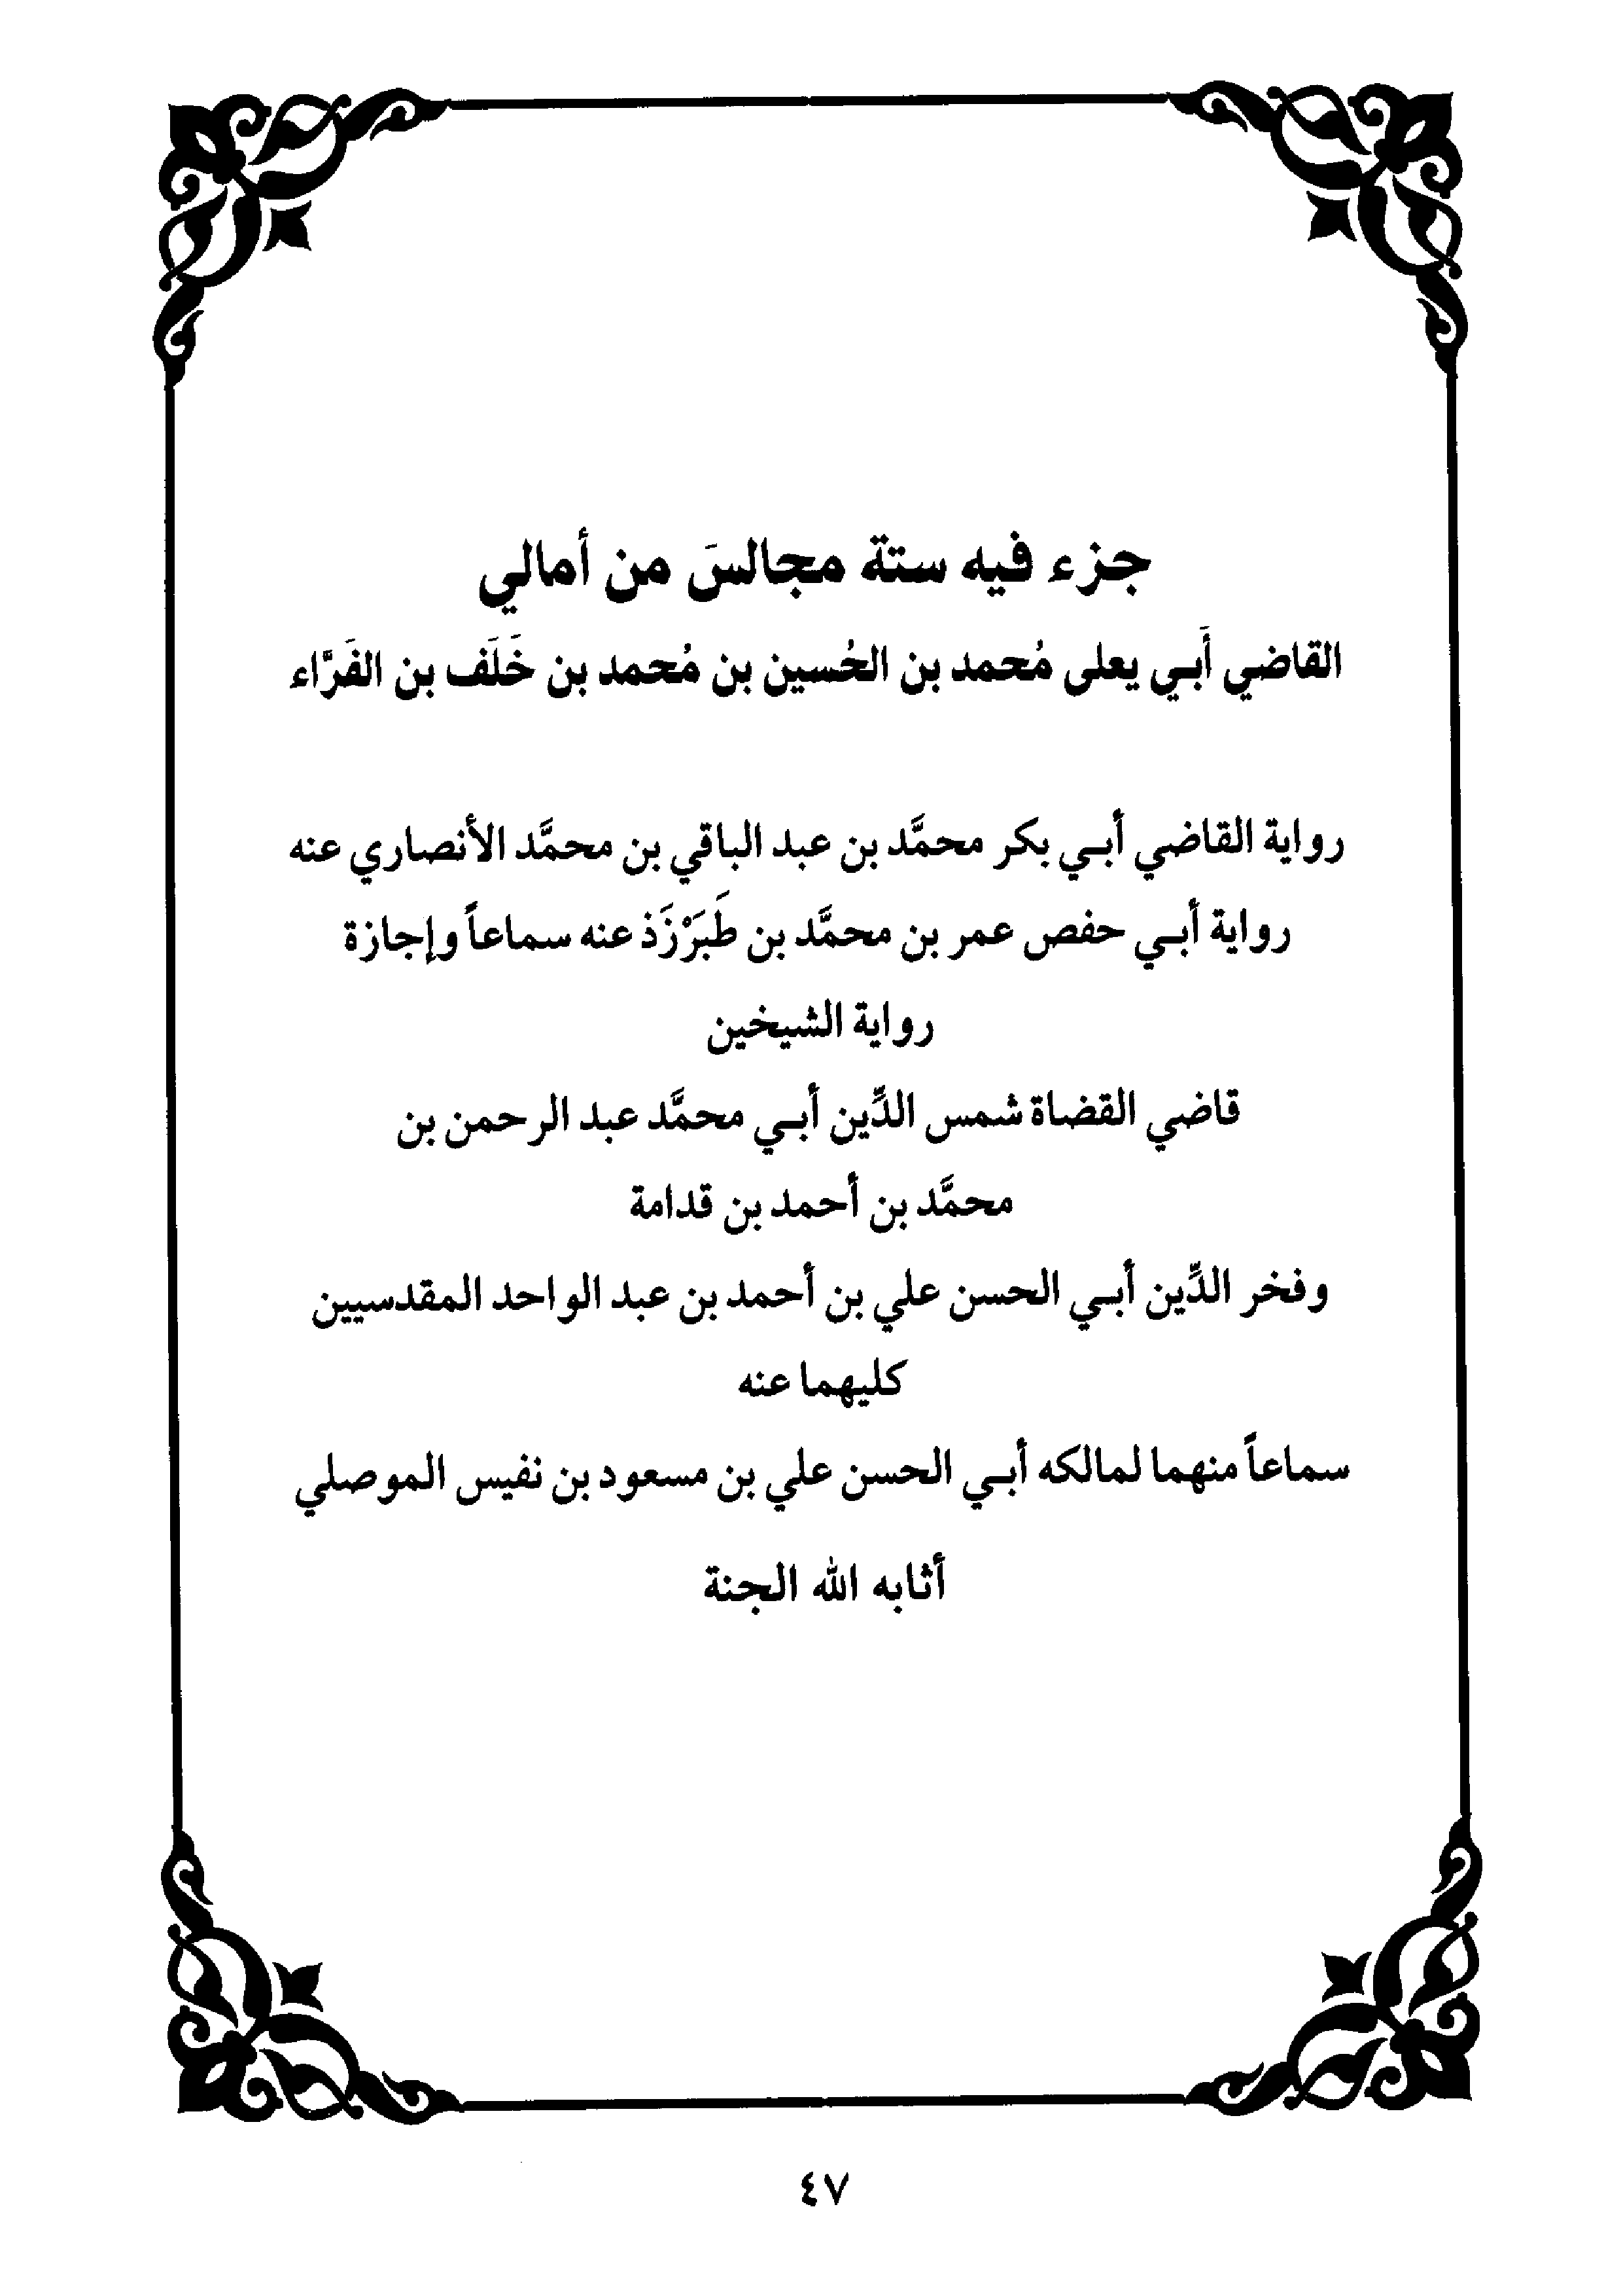 جزء فيه ستة مجالسَ من أمالي
القاضي أَبي يعلى مُحمد بن الحُسين بن مُحمد بن خَلَف بن الفَرَّاء
رواية القاضي أبي بكر محمَّد بن عبد الباقي بن محمَّد الأنصاري عنه
رواية أبي حفص عمر بن محمَّد بن طَبَرْزَذ عنه سماعاً وإجازة
رواية الشيخين
قاضي القضاة شمس الدِّين أبي محمَّد عبد الرحمن بن
محمَّد بن أحمد بن قدامة
وفخر الدِّين أبي الحسن علي بن أحمد بن عبد الواحد المقدسيين
كليهما عنه
سماعاً منهما لمالكه أبي الحسن علي بن مسعود بن نفيس الموصلي
أثابه الله الجنة
٤٧